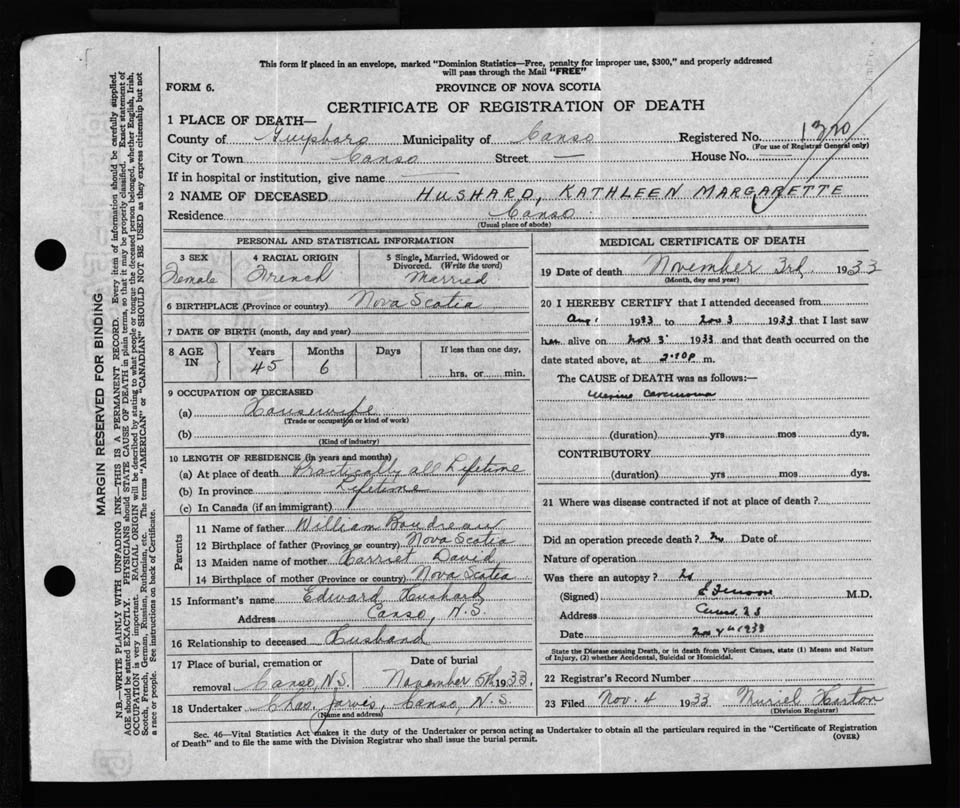 This form if placed in an envelope, marked "Dominion Statistics—Free, penalty for improper use, $300," and properly addressed
will pass through the Mail "FREE"
FORM 6. PROVINCE OF NOVA SCOTIA
CERTIFICATE OF REGISTRATION OF DEATH
1 PLACE OF DEATH—
County of Guysboro Municipality of Canso Registered No.
(For use of Registrar General only)
City or Town Canso Street — House No. —
If in hospital or institution, give name —
2 NAME OF DECEASED HUSHARD, KATHLEEN MARGARETTE
Residence Canso
(Usual place of abode)
PERSONAL AND STATISTICAL INFORMATION
3 SEX 4 RACIAL ORIGIN 5 Single, Married, Widowed or
Divorced. (Write the word)
Female French Married
6 BIRTHPLACE (Province or country) Nova Scotia
7 DATE OF BIRTH (month, day and year)
8 AGE IN Years Months Days If less than one day,
45 6 hrs. or min.
9 OCCUPATION OF DECEASED
(a) Housewife
(Trade or occupation or kind of work)
(b)
(Kind of industry)
10 LENGTH OF RESIDENCE (in years and months)
(a) At place of death Practically all Lifetime
(b) In province Lifetime
(c) In Canada (if an immigrant)
Parents
11 Name of father William Boudreau
12 Birthplace of father (Province or country) Nova Scotia
13 Maiden name of mother Harriet David
14 Birthplace of mother (Province or country) Nova Scotia
15 Informant's name Edward Hushard
Address Canso, N.S.
16 Relationship to deceased Husband
17 Place of burial, cremation or Date of burial
removal Canso, N.S. November 5th 1933
18 Undertaker Chas. Jarvis, Canso, N.S.
(Name and address)
MEDICAL CERTIFICATE OF DEATH
19 Date of death November 3rd, 1933
(Month, day and year)
20 I HEREBY CERTIFY that I attended deceased from
Aug. 1933 to Nov 3 1933 that I last saw
her alive on Nov 3 1933 and that death occurred on the
date stated above, at m.
The CAUSE of DEATH was as follows:—
Uterine Carcinoma
(duration) yrs mos dys.
CONTRIBUTORY
(duration) yrs. mos. dys.
21 Where was disease contracted if not at place of death?
Did an operation precede death? No Date of
Nature of operation
Was there an autopsy? No
(Signed) M.D.
Address Canso N S
Date Nov 4 1933
State the Disease causing Death, or in death from Violent Causes, state (1) Means and Nature
of Injury, (2) whether Accidental, Suicidal or Homicidal.
22 Registrar's Record Number
23 Filed Nov. 4 1933 Muriel
(Division Registrar)
Sec. 46—Vital Statistics Act makes it the duty of the Undertaker or person acting as Undertaker to obtain all the particulars required in the "Certificate of Registration
of Death" and to file the same with the Division Registrar who shall issue the burial permit.
(OVER)
MARGIN RESERVED FOR BINDING
N.B.—WRITE PLAINLY WITH UNFADING INK—THIS IS A PERMANENT RECORD. Every item of information should be carefully supplied.
AGE should be stated EXACTLY. PHYSICIANS should STATE CAUSE OF DEATH in plain terms, so that it may be properly classified. Exact statement of
OCCUPATION is very important. RACIAL ORIGIN will be described by stating to what people or tongue the deceased person belonged, whether English, Irish,
Scotch, French, German, Russian, Ruthenian, etc. The terms "AMERICAN" or "CANADIAN" SHOULD NOT BE USED as they express citizenship but not
a race or people. See instructions on back of Certificate.